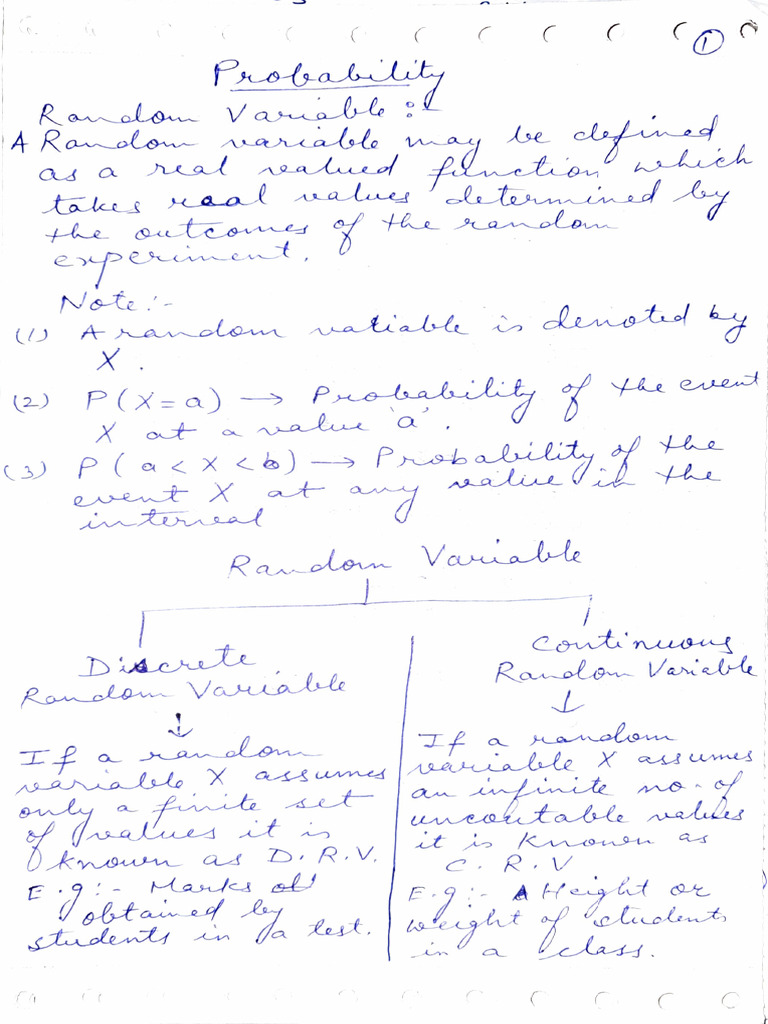 1
Probability
Random Variable :-
A Random variable may be defined
as a real valued function which
takes real values determined by
the outcomes of the random
experiment.
Note:-
(1) A random variable is denoted by
X.
(2) P(X=a) → Probability of the event
X at a value 'a'.
(3) P(a<X<b) → Probability of the
event X at any value in the
interval
Random Variable
Discrete
Random Variable
↓
If a random
variable X assumes
only a finite set
of values it is
known as D.R.V.
E.g:- Marks
obtained by
students in a test.
Continuous
Random Variable
↓
If a random
variable X assumes
an infinite no. of
uncoutable values
it is known as
C.R.V
E.g:- Height or
weight of students
in a class.